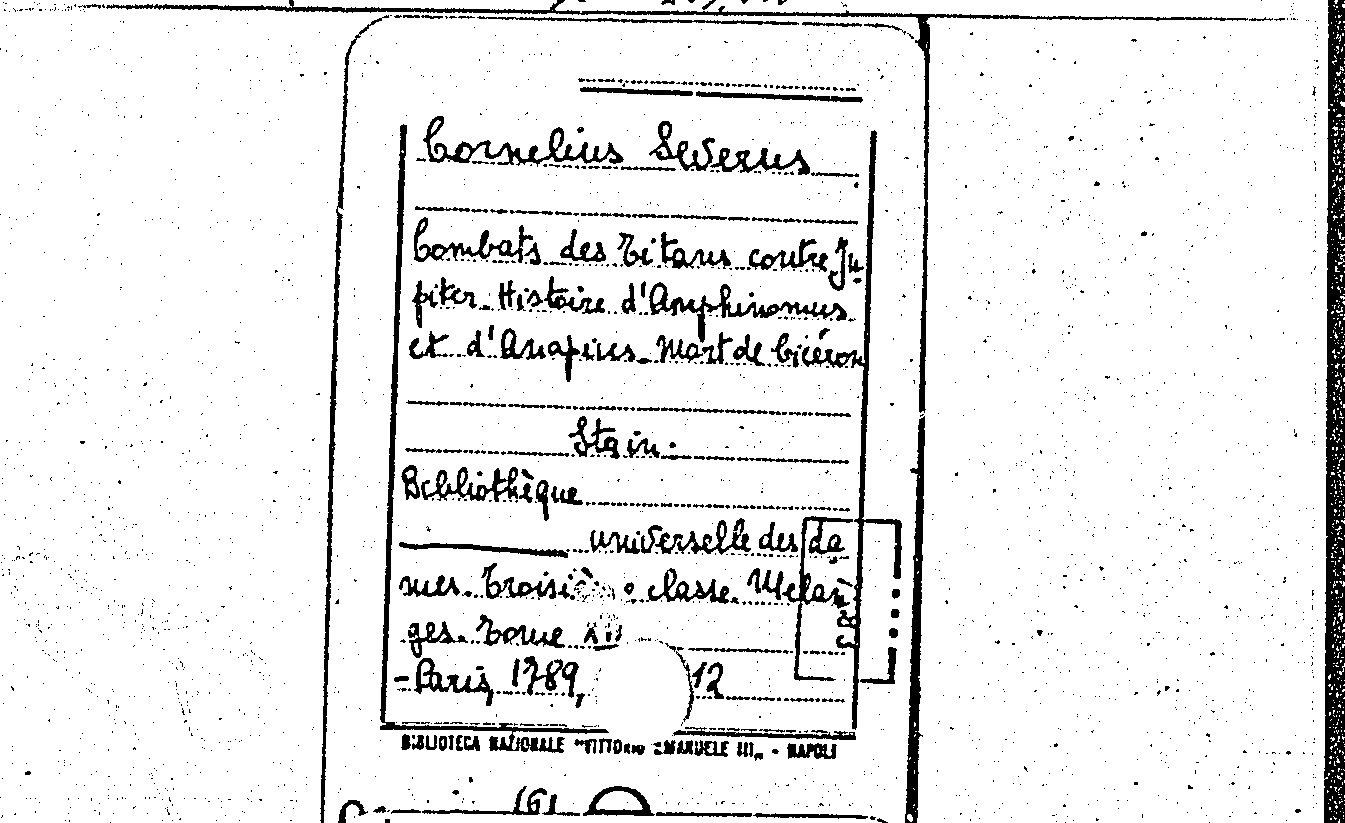 Cornelius Severus
Combats des Titans contre Ju-
piter. Histoire d'Amphinomus
et d'Anapius. Mort de Cicéron
Sta in:
Bibliothèque
universelle des da-
mes. Troisiè e classe. Melan-
ges. Tome
- Paris, 1789, 12
BIBLIOTECA NAZIONALE "VITTORIO EMANUELE III" - NAPOLI